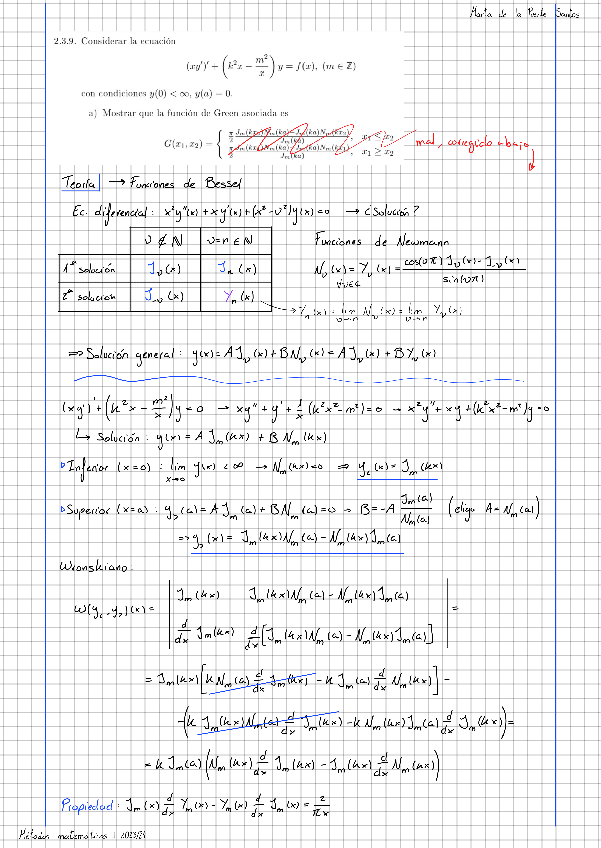 Marta de la Puente Santos
2.3.9. Considerar la ecuación
(xy')' + (k²x − m²/x) y = f(x), (m ∈ ℤ)
con condiciones y(0) < ∞, y(a) = 0.
a) Mostrar que la función de Green asociada es
G(x₁, x₂) = { π/2 (J_m(kx₁)N_m(ka)−J_m(ka)N_m(kx₂))/J_m(ka), x₁ < x₂
π/2 (J_m(kx₂)N_m(ka)−J_m(ka)N_m(kx₁))/J_m(ka), x₁ ≥ x₂
mal, corregido abajo
Teoría → Funciones de Bessel
Ec. diferencial: x²y''(x) + xy'(x) + (x² − υ²)y(x) = 0 → ¿Solución?
υ ∉ ℕ υ=n ∈ ℕ
1ª solución J_υ(x) J_n(x)
2ª solución J_-υ(x) Y_n(x)
Funciones de Newmann
N_υ(x) = Y_υ(x) = (cos(υπ) J_υ(x) − J_-υ(x))/sin(υπ)
∀υ∈ℂ
→ Y_n(x) = lim_υ→n N_υ(x) = lim_υ→n Y_υ(x)
⇒ Solución general: y(x) = A J_υ(x) + B N_υ(x) = A J_υ(x) + B Y_υ(x)
(xy')' + (k²x − m²/x)y = 0 → xy'' + y' + 1/x (k²x² − m²) = 0 → x²y'' + xy + (k²x² − m²)y = 0
↳ Solución: y(x) = A J_m(kx) + B N_m(kx)
▷ Inferior (x=0): lim_x→0 y(x) < ∞ → N_m(kx)=0 ⇒ y_<(x) = J_m(kx)
▷ Superior (x=a): y_>(a) = A J_m(a) + B N_m(a) = 0 → B = −A J_m(a)/N_m(a) (elijo A = N_m(a))
⇒ y_>(x) = J_m(kx)N_m(a) − N_m(kx)J_m(a)
Wronskiano:
W(y_<, y_>)(x) = | J_m(kx) J_m(kx)N_m(a) − N_m(kx)J_m(a) |
| d/dx J_m(kx) d/dx [J_m(kx)N_m(a) − N_m(kx)J_m(a)] | =
= J_m(kx)[k N_m(a) d/dx J_m(kx) − k J_m(a) d/dx N_m(kx)] −
−(k J_m(kx)N_m(a) d/dx J_m(kx) − k N_m(kx)J_m(a) d/dx J_m(kx)) =
= k J_m(a) (N_m(kx) d/dx J_m(kx) − J_m(kx) d/dx N_m(kx))
Propiedad: J_m(x) d/dx Y_m(x) − Y_m(x) d/dx J_m(x) = 2/πx
Métodos matemáticos I 2023/24